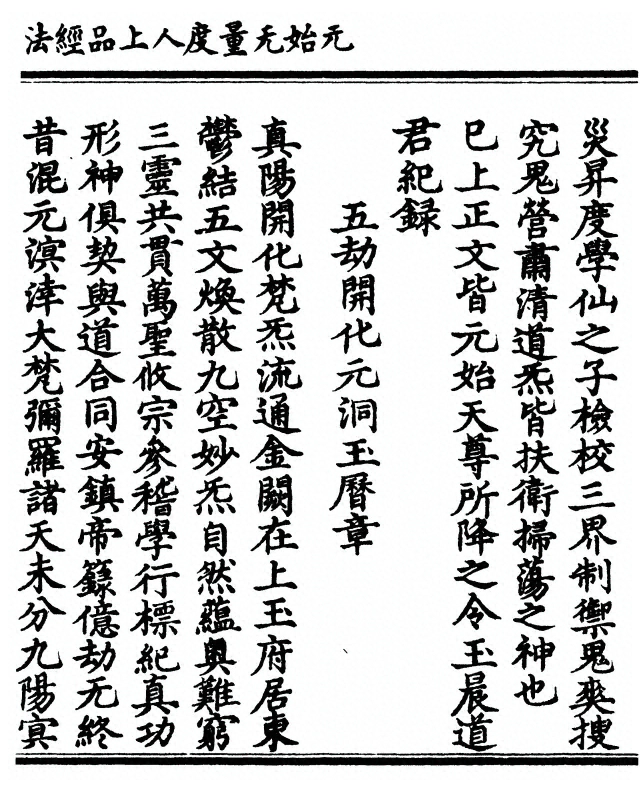 元始无量度人上品經法
災昇度學仙之子檢校三界制禦鬼爽搜
究鬼營肅清道炁皆扶衛掃蕩之神也
已上正文皆元始天尊所降之令玉晨道
君紀録
五劫開化元洞玉曆章
真陽開化梵炁流通金闕在上玉府居東
鬱結五文煥散九空妙炁自然蘊奥難窮
三靈共貫萬聖攸宗參稽學行標紀真功
形神俱契與道合同安鎮帝籙億劫无終
昔混元溟涬大梵彌羅諸天未分九陽㝠